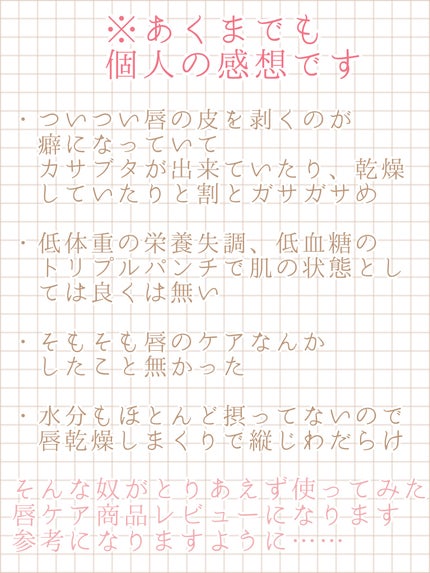 ※あくまでも
個人の感想です
・ついつい唇の皮を剥くのが
癖になっていて
カサブタが出来ていたり、乾燥
していたりと割とガサガサめ
・低体重の栄養失調、低血糖の
トリプルパンチで肌の状態とし
ては良くは無い
・そもそも唇のケアなんか
したこと無かった
・水分もほとんど摂ってないので
唇乾燥しまくりで縦じわだらけ
そんな奴がとりあえず使ってみた
唇ケア商品レビューになります
参考になりますように……